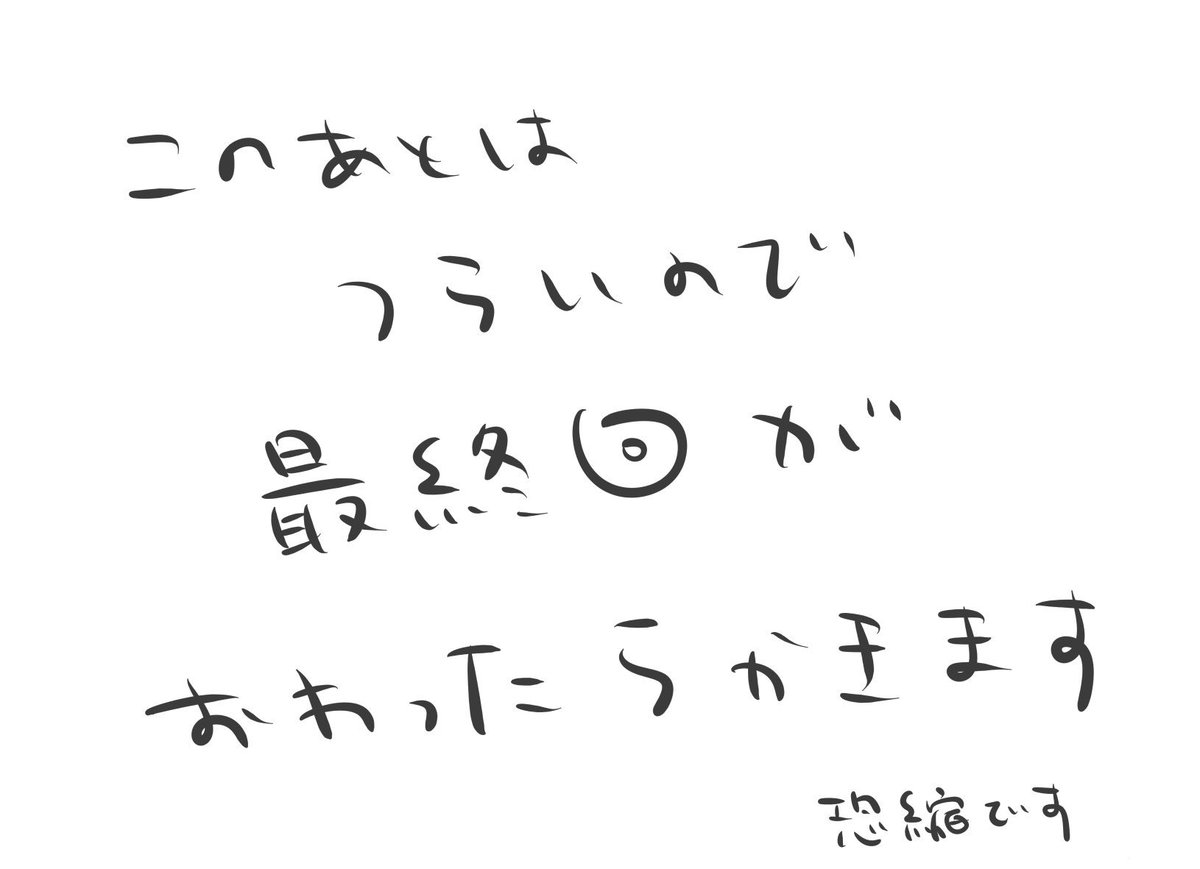 このあとは
つらいので
最終回が
おわったらかきます
恐縮です